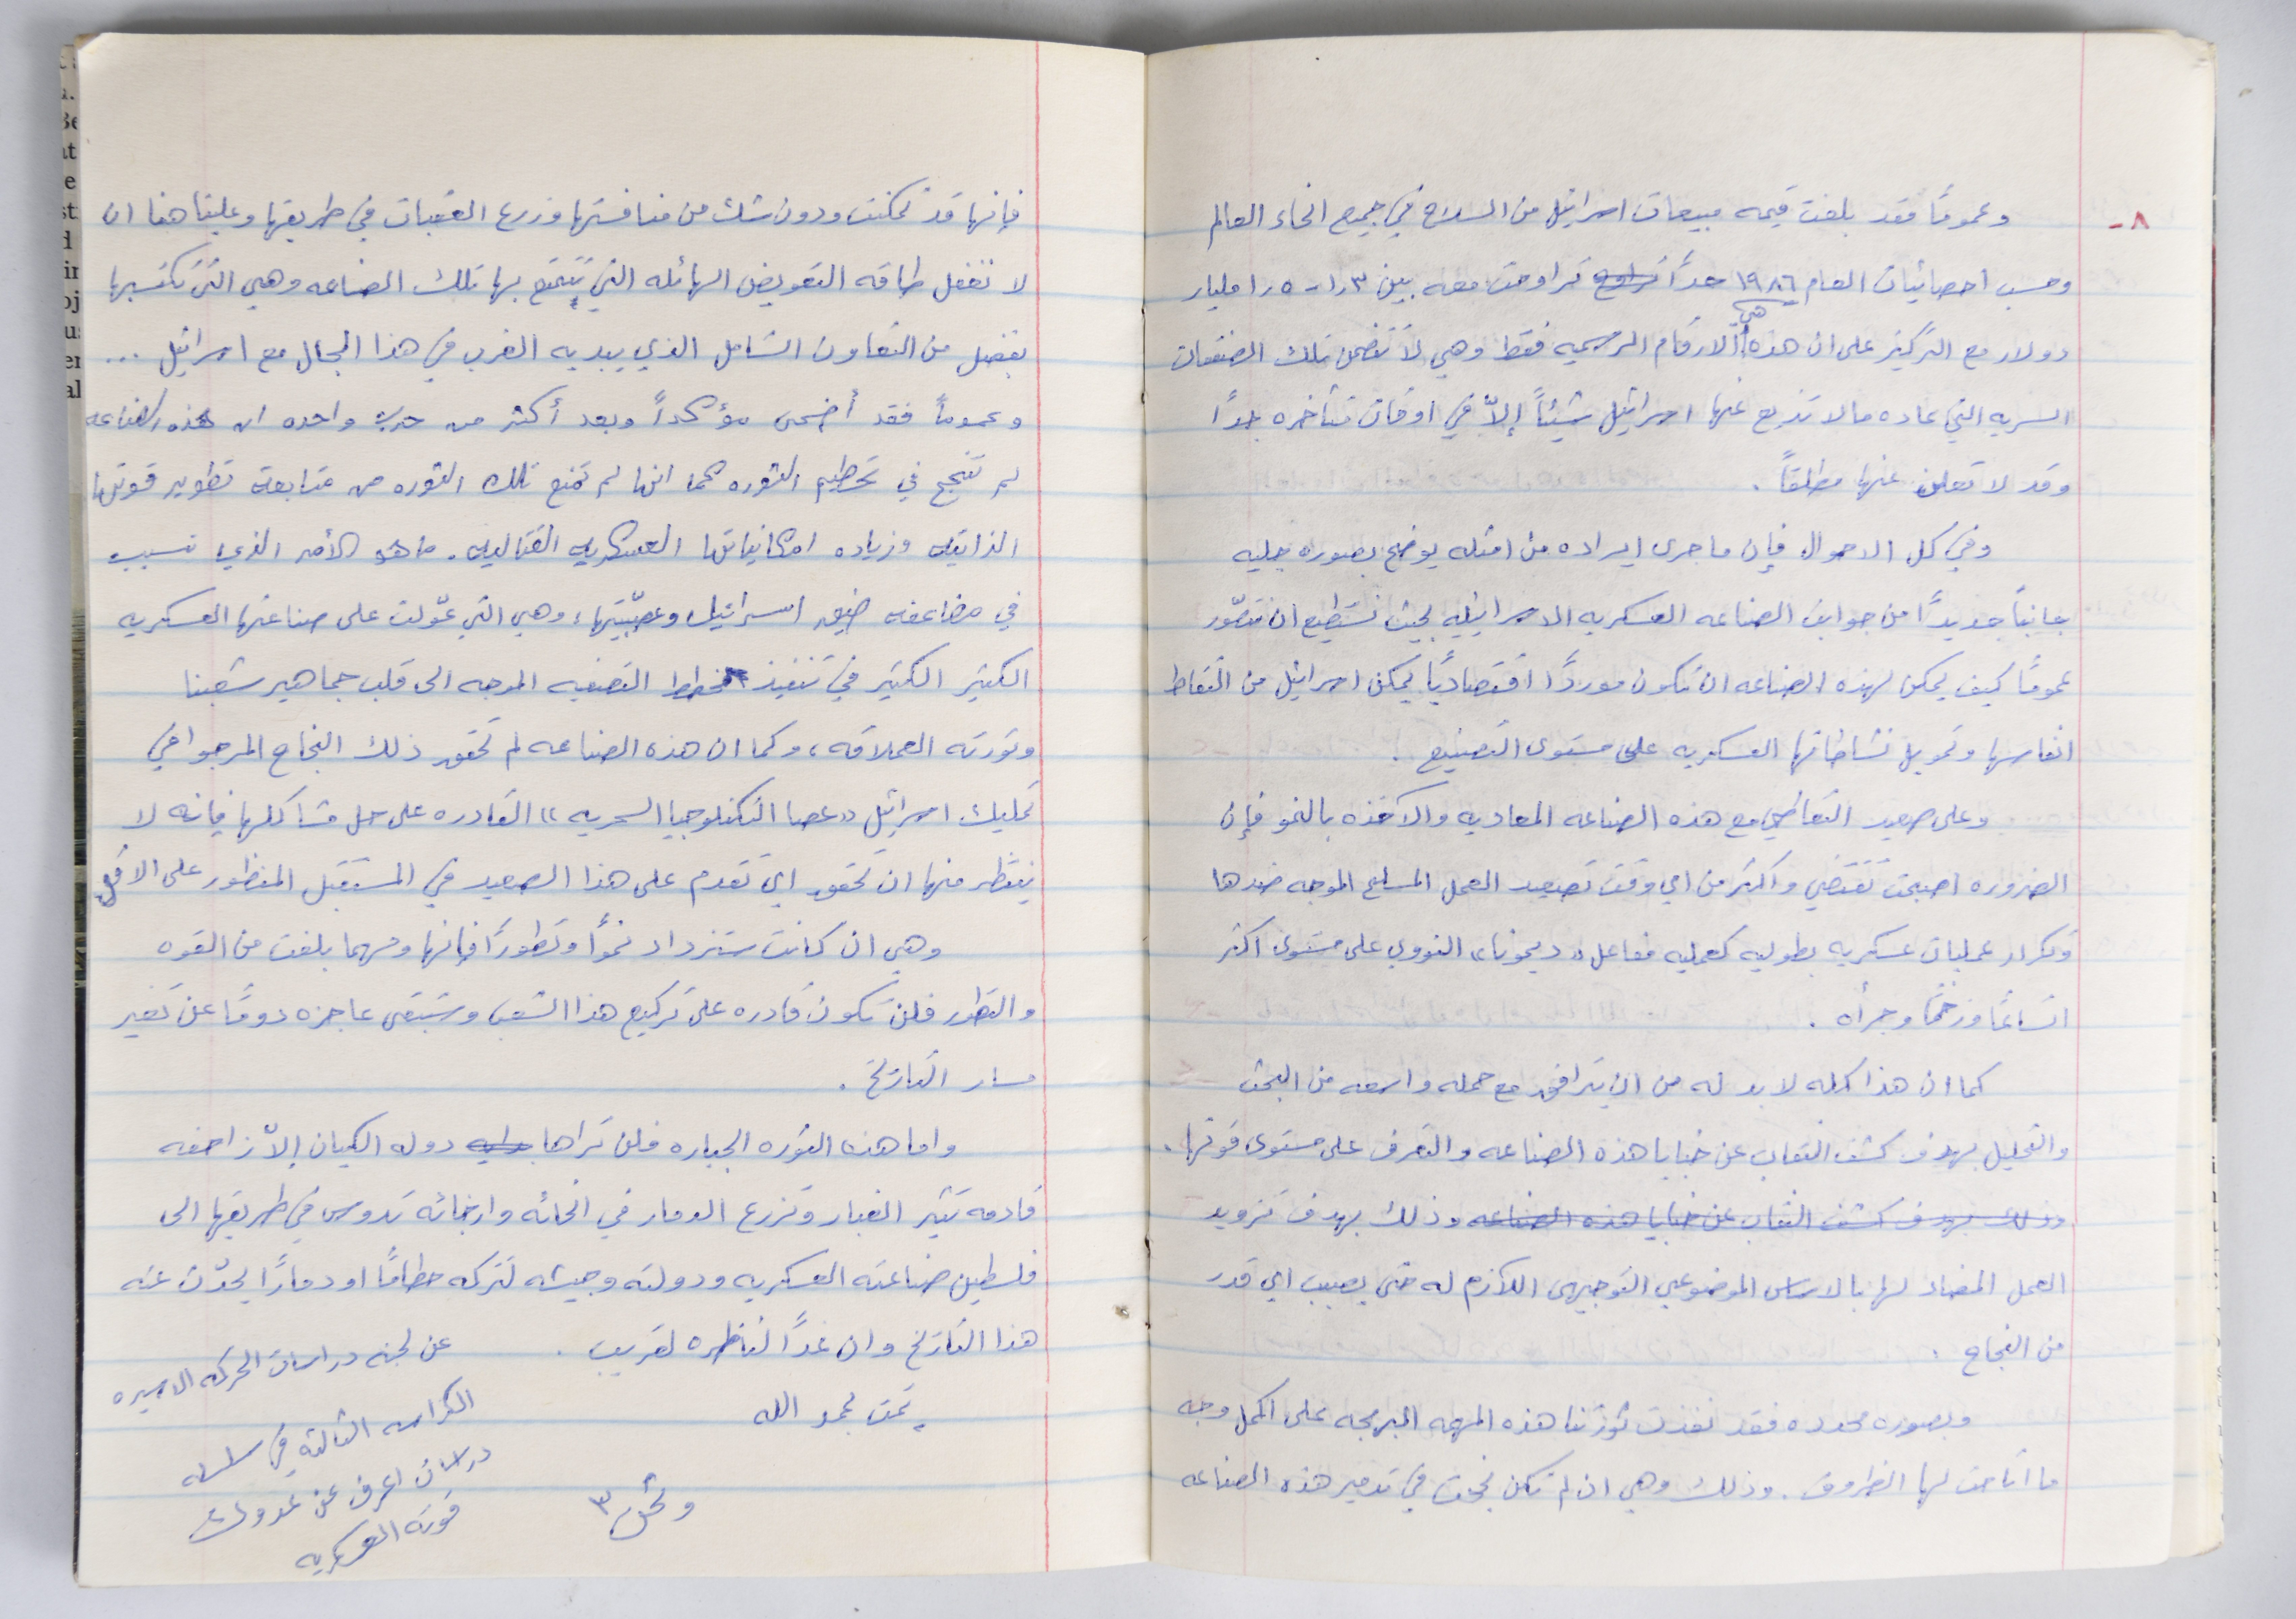 ٨-
وعمومًا فقد بلغت قيمه مبيعات اسرائيل من السلاح في جميع انحاء العالم
وحسب احصائيات العام ١٩٨٦ حدًا تراوحت معه بين ١٫٣ - ١٫٥ مليار
دولار مع التركيز على ان هذه هي الارقام الرسميه فقط وهي لا تتضمن تلك الصفقات
السريه التي عاده ما لا تذيع عنها اسرائيل شيئاً إلاّ في اوقات متأخره جدًا
وقد لا تعلن عنها مطلقاً .
وفي كل الاحوال فإن ما جرى ايراده من امثله يوضح بصوره جليه
جانباً جديدًا من جوانب الصناعه العسكريه الاسرائيليه بحيث نستطيع ان نتصّور
عمومًا كيف يمكن لهذه الصناعه ان تكون موردًا اقتصاديًا يمكن اسرائيل من التقاط
انفاسها وتمويل نشاطاتها العسكريه على مستوى التصنيع .
وعلى صعيد التعاطي مع هذه الصناعه المعاديه والآخذه بالنمو فإن
الضروره اصبحت تقتضي واكثر من اي وقت تصعيد العمل المسلح الموجه ضدها
وتكرار عمليات عسكريه بطوليه كعمليه مفاعل « ديمونا » النووي على مستوى اكثر
اتساعًا وزخمًا وجرأه .
كما ان هذا كله لا بد له من ان يترافق مع حمله واسعه من البحث
والتحليل بهدف كشف النقاب عن خبايا هذه الصناعه والتعرف على مستوى قوتها .
وذلك بهدف كشف النقاب عن خبايا هذه الصناعه وذلك بهدف تزويد
العمل المضاد لها بالاساس الموضوعي التوجيهي اللازم له حتى يصيب اي قدر
من النجاح .
وبصوره محدده فقد نفذت ثورتنا هذه المهمه المبرمجه على اكمل وجه
ما اتاحت لها الظروف . وذلك وهي ان لم تكن نجحت في تدمير هذه الصناعه
فإنها قد تمكنت ودون شك من منافستها وزرع العقبات في طريقها وعلينا هنا ان
لا نغفل طاقه التعويض الهائله التي تتمتع بها تلك الصناعه وهي التي تكتسبها
بفضل من التعاون الشامل الذي يبديه الغرب في هذا المجال مع اسرائيل ...
وعموماً فقد أضحى مؤكداً وبعد أكثر من حرب واحده ان هذه الصناعه
لم تنجح في تحطيم الثوره كما انها لم تمنع تلك الثوره من متابعة تطوير قوتها
الذاتيه وزياده امكانياتها العسكريه القتاليه . ما هو الأمر الذي تسبب
في مضاعفه ضيق اسرائيل وعصبّيتها، وهي التي عوّلت على صناعتها العسكريه
الكثير الكثير في تنفيذ مخطط التصفيه الموجه الى قلب جماهير شعبنا
وثورته العملاقه ، وكما ان هذه الصناعه لم تحقق ذلك النجاح المرجوا في
تمليك اسرائيل « عصا التكنلوجيا السحريه » القادره على حل مشاكلها فإنه لا
ينتظر منها ان تحقق اي تقدم على هذا الصعيد في المستقبل المنظور على الاقل
وهي ان كانت ستزداد نموًا وتطورًا فإنها ومهما بلغت من القوه
والتطور فلن تكون قادره على تركيع هذا الشعب وستبقى عاجزه دومًا عن تغير
مسار التاريخ .
واما هذه الثوره الجباره فلن تراها دوله الكيان إلاّ زاحفه
قادمه تثير الغبار وتزرع الدمار في انحائه وارجائه تدوس في طريقها الى
فلسطين صناعته العسكريه ودولته وجيشه لتتركه حطامًا او دمارًا يحدّث عنه
هذا التاريخ وان غدًا لناظره لقريب .
تمت بحمد الله
عن لجنه دراسات الحركه الاسيره
الكراسه الثالثه في سلسله
دراسات اعرف عن عدوك
قوته العسكريه